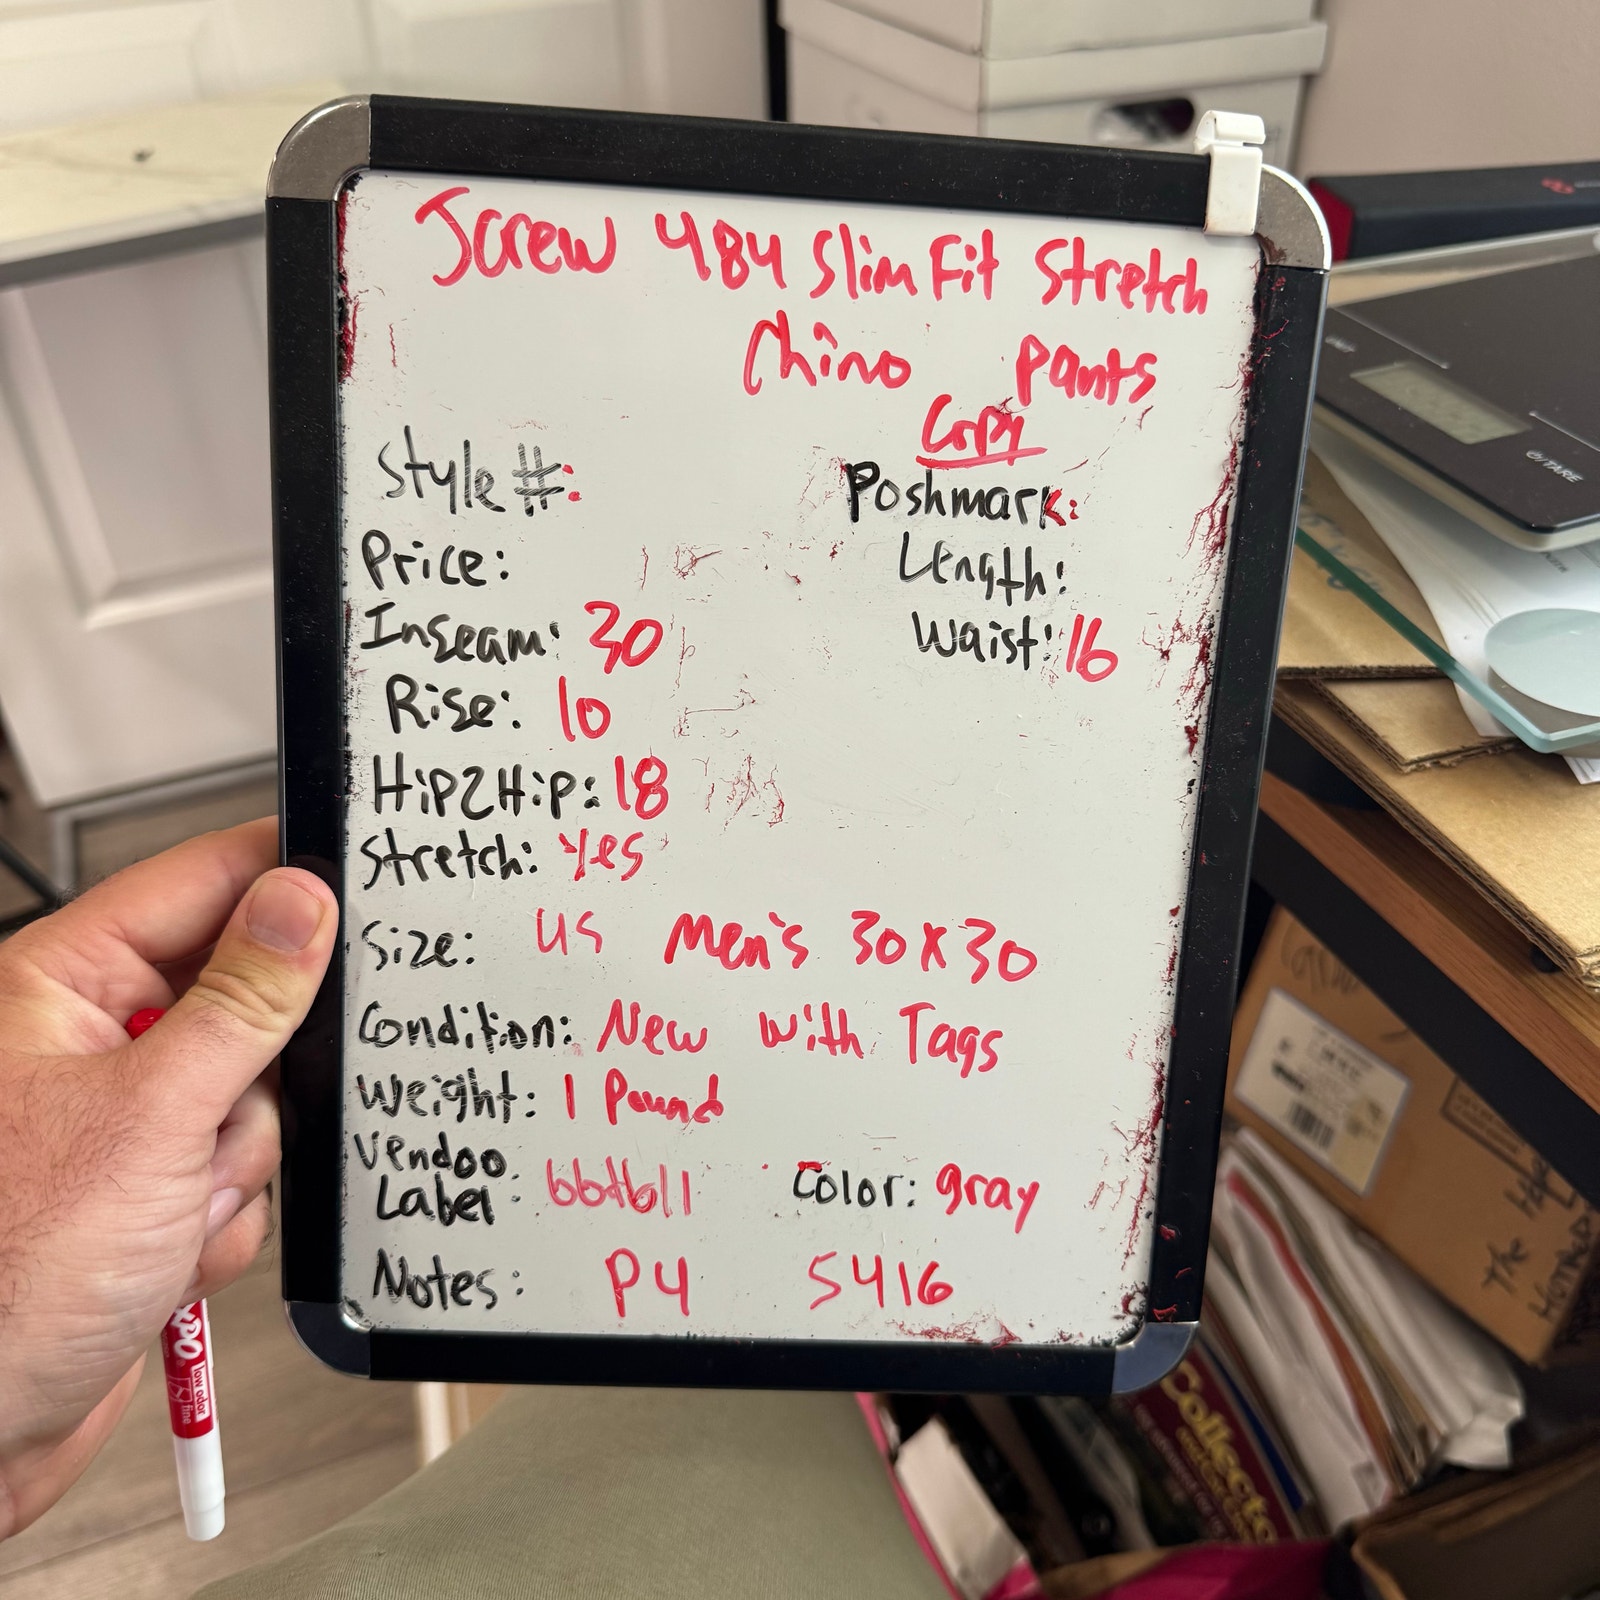 Jcrew 484 Slim Fit Stretch
Chino Pants
Copy
Style #:
Poshmark:
Price:
Length:
Inseam: 30
Waist: 16
Rise: 10
Hip2Hip: 18
Stretch: Yes
Size: US Men's 30x30
Condition: New with Tags
Weight: 1 Pound
Vendoo
Label:
Color: gray
Notes: P4 5416
EXPO
low odor
fine
O/TARE
Collecto
The